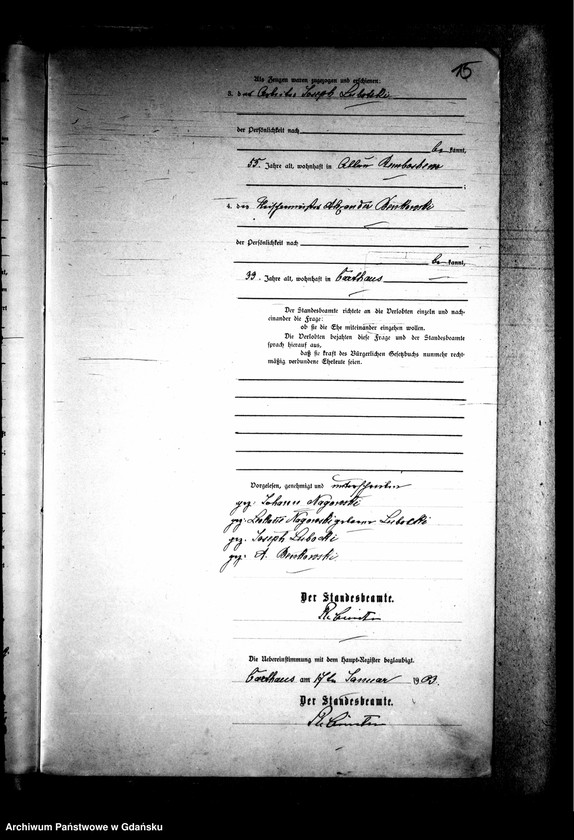 15
Als Zeugen waren zugezogen und erschienen:
3. der Arbeiter Joseph Lubotzki
der Persönlichkeit nach
be kannt,
55. Jahre alt, wohnhaft in
;
4. der Fleischermeister Alexander Benkowski
der Persönlichkeit nach
be kannt,
39. Jahre alt, wohnhaft in Carthaus
Der Standesbeamte richtete an die Verlobten einzeln und nach-
einander die Frage:
ob sie die Ehe miteinander eingehen wollen.
Die Verlobten bejahten diese Frage und der Standesbeamte
sprach hierauf aus,
daß sie kraft des Bürgerlichen Gesetzbuchs nunmehr recht-
mäßig verbundene Eheleute seien.
Vorgelesen, genehmigt und unterschrieben
gez. Johann Nagorski
gez. Nagorski geborene Lubotzki
gez. Joseph Lubocki
gez. A. Benkowski.
Der Standesbeamte.
Die Uebereinstimmung mit dem Haupt-Register beglaubigt.
Carthaus am Januar 1903.
Der Standesbeamte.
Archiwum Państwowe w Gdańsku